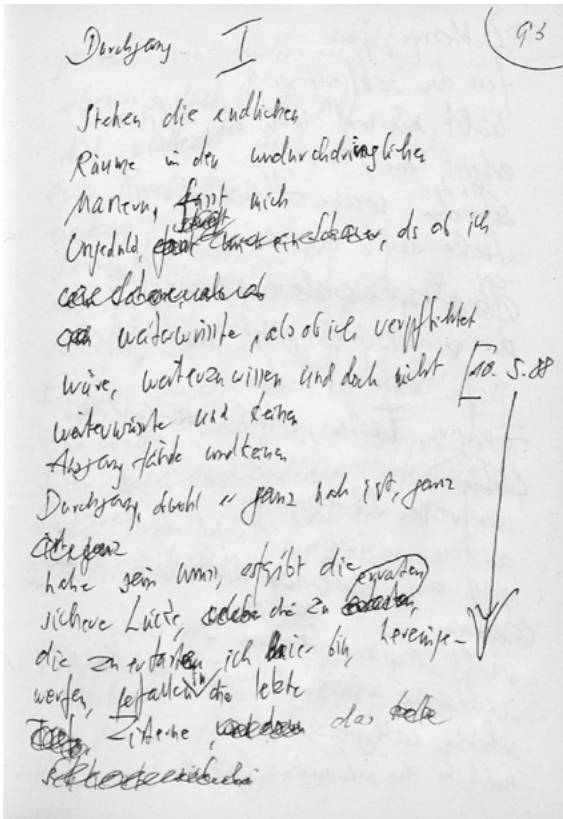 Durchgang I 93
Stehen die endlichen
Räume in den undurchdringlichen
Mauern, fasst mich
Ungeduld, als ob ich
weiterwüsste, als ob ich verpflichtet
wäre, weiterzuwissen und doch nicht [10. 5. 88
weiterwüsste und keinen
Abgang fände und keinen
Durchgang, obwohl er ganz nah ist, ganz
nahe sein muss, es gibt die
erraten
sichere Lücke, die zu
die zu ertasten ich hier bin, hereinge-
worfen, gefallen in die letzte
Zisterne, das